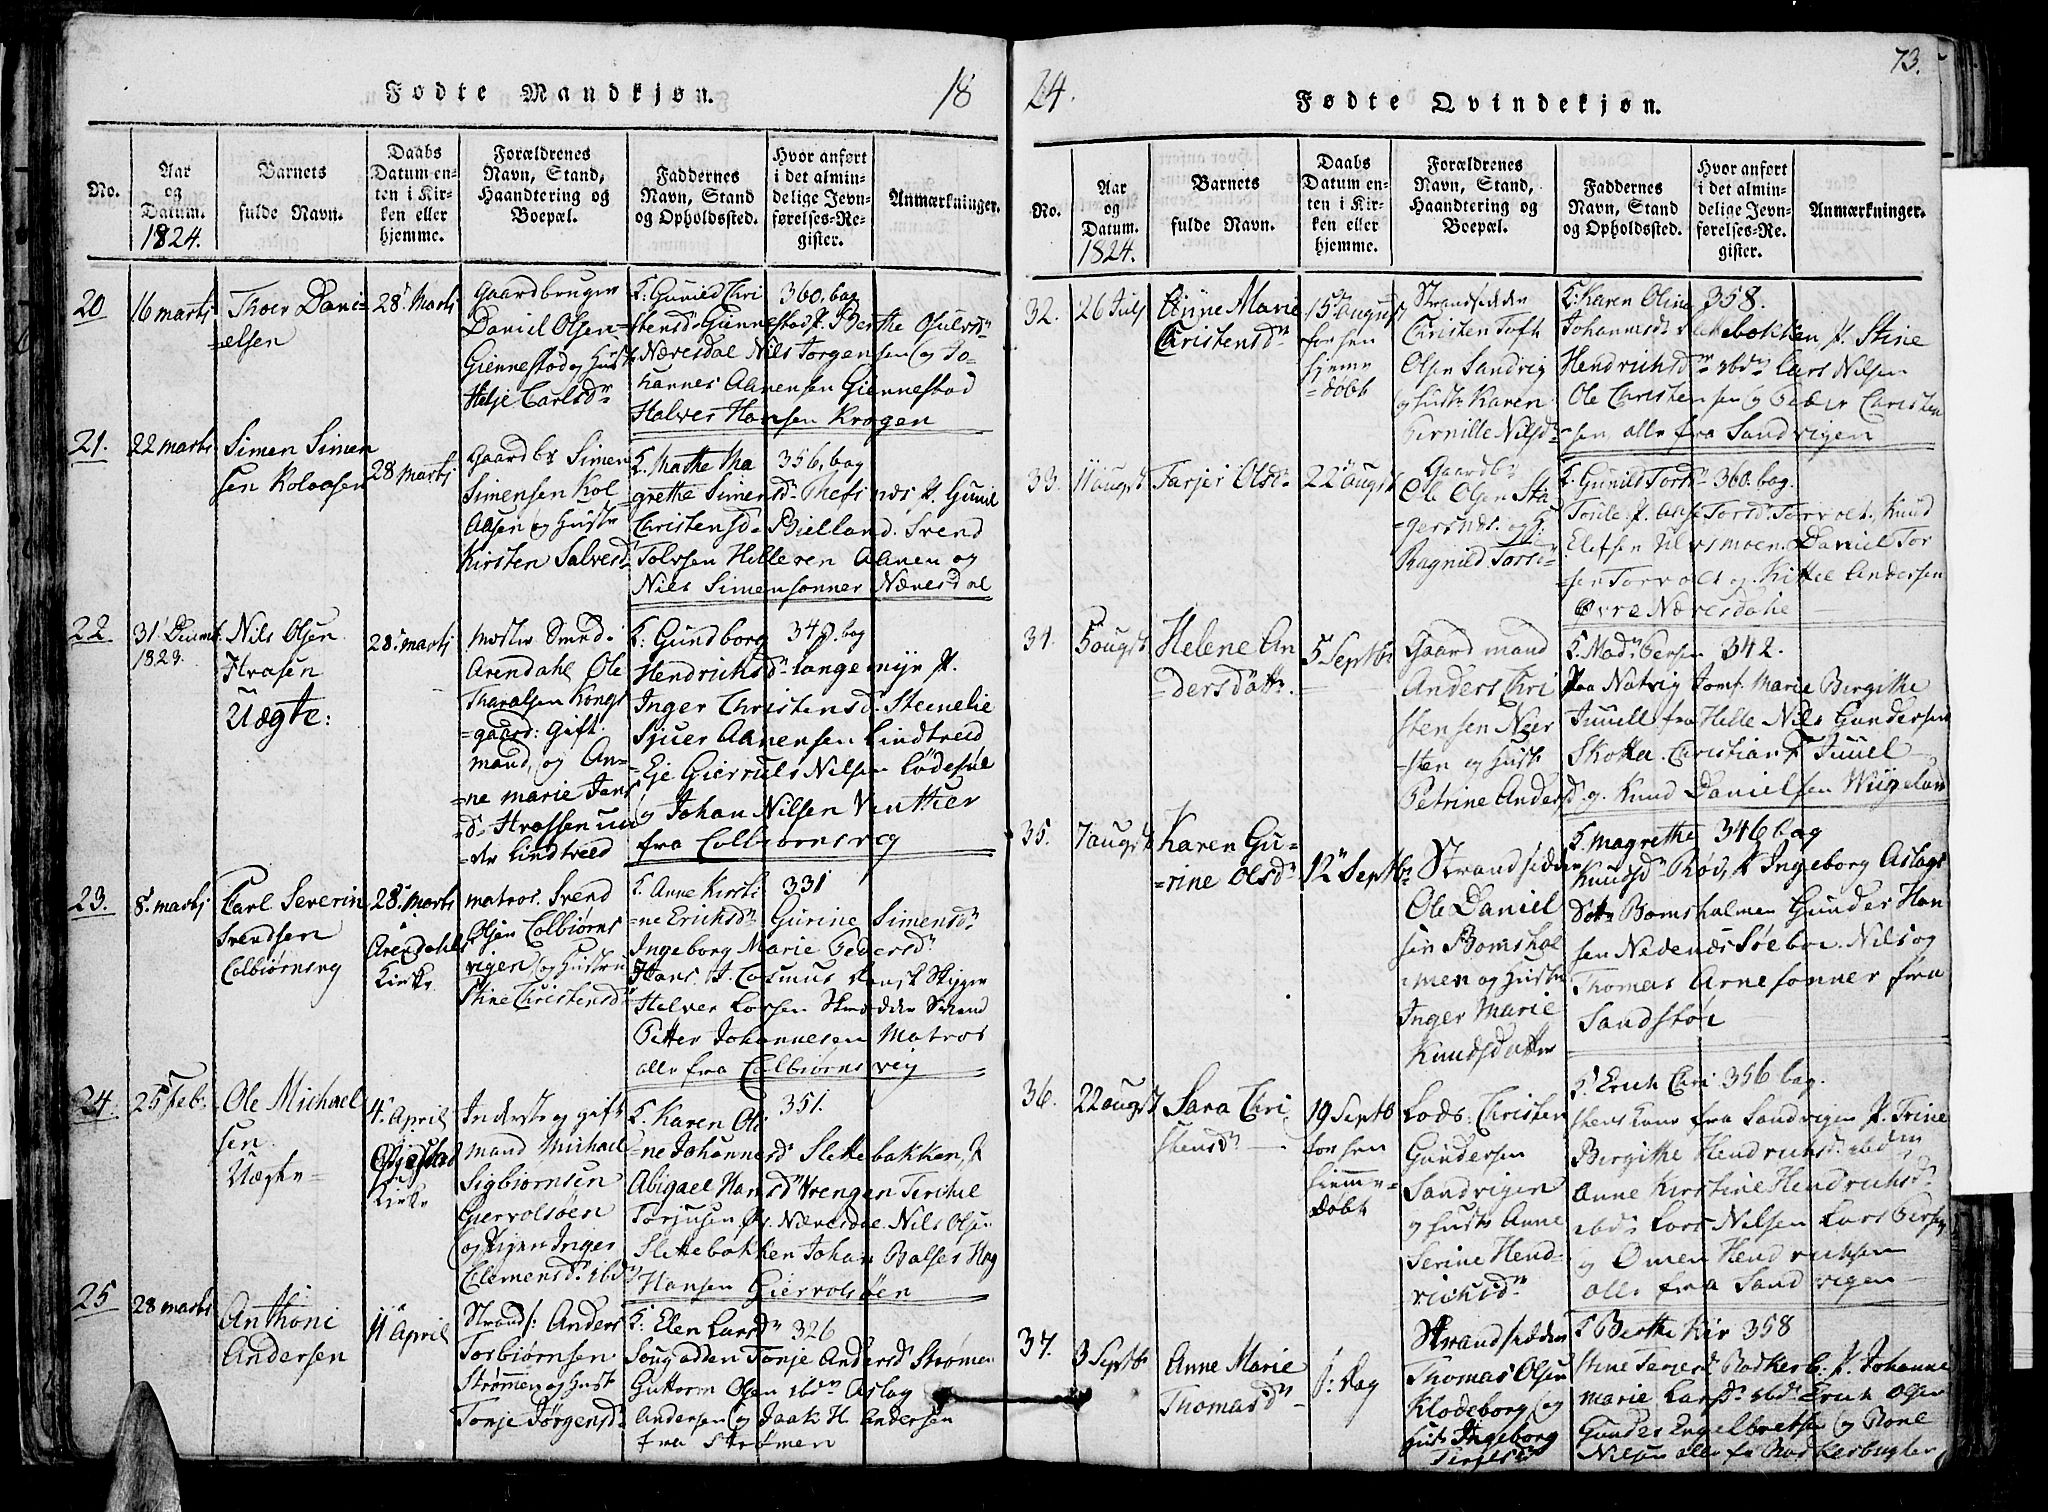 Fødte Mandkjøn.
18
No.
Aar
og
Datum.
1824.
Barnets
fulde Navn.
Daabs
Datum en-
ten i Kir-
ken eller
hjemme.
Forældrenes
Navn, Stand,
Haandtering og
Boepæl.
Faddernes
Navn, Stand
og Opholdssted.
Hvor anført
i det almin-
delige Jevn-
førelses-Re-
gister.
Anmærkninger.
20
16 martj
Thoer Dani-
=elsen
28 Martj
Gaardbruger
Daniel Olsen
Giennestad og Hust
Helje Carlsdr
F: Gunild Chri 360, bag
stensd: Gunnestad P. Berthe Osulvsdr
Næresdal Nils Torgensen og Jo-
hannes Aanensen Giennestad
Halver Hansen Krogen
21.
22 martj
Simen Simen
sen Kolaasen
28 martj
Gaardbr Simen
Simensen Kol
Aasen og Hustr
Kirsten Salvesdr
F. Marthe Ma 356, bag
grethe Simensdr Thefsnæs P. Gunil
Christensd. Bielland. Svend
Tolvsen Hilleren Aanen og
Nils Simensønner Næresdal
22
31 Decemb.
1823.
Nils Olsen
Strasen
Uægte:
28. martj
Mester Smed i
Arendahl Ole
Tharalsen Kongs
=gaard: Gift
mand, og An-
=ne marie Jens
dr Strossen un
=der Lindtveed
F: Gundborg 34 . bag
Hendrichsdr Langemyr P.
Inger Christensd. Steenelie
Sjuer Aanensen Lindtveid
Eje Gierruls Nilsen Lødesøl
og Johan Nilsen Vinther
fra Colbiørnsvig
23.
8. martj
Carl Severin
Svendsen
Colbiørnsvig
28. martj
i
Arendahls
Kirke
matros. Svend
Olsen Colbiørns
vigen og Hustrue
Stine Christensdr
F. Anne Kirsti 331
=ne Eriksdr Gurine Simensdr
Ingeborg Marie Pedersdr
Hans A Casmus Dansk Skipper
Halver Larsen Skredder Svend
Petter Johannesen Matros
alle fra Colbiørnsvig
24.
25 Feb.
Ole Michael
sen.
Uægte
4. April
Øyestad
Kirke
Inderst og gift
mand Michael
Sigbiørnsen
Giervolsøen
og Pigen Inger
Clemensd: ibdm
F. Karen Oli 351.
=ne Johannesd Slettebakken, P
Abigael Hansdr Vrengen Terchil
Torjusen Næresdal. Nils Olsen
Slettebakken Johan Balser Hog
Hansen Giervolsøen
25
28 martj
Anthoni
Andersen
11 April
Strands: Anders
Torbiørnsen
Strømmen og Hust
Tonje Jørgensdr
F: Elen Larsdr 326
Songadden Tonje Andersd Strømen
Guttorm Olsen ibdm Aslag
Andersen og Isaak H. Andersen
fra Strømen
24.
73.
Fødte Qvindekjøn.
No.
Aar
og
Datum.
1824.
Barnets
fulde Navn.
Daabs
Datum en-
ten i Kir-
ken eller
hjemme.
Forældrenes
Navn, Stand,
Haandtering og
Boepæl.
Faddernes
Navn, Stand
og Opholdssted.
Hvor anført
i det almin-
delige Jevn-
førelses-Re-
gister.
Anmærkninger.
32.
26 Julj
Anne Marie
Christensdr
15 august
for hen
hieme
=døbt
Strandsidder
Christen Toft
Olsen Sandvig
og Hustr Karen
Pernille Nilsdr
F: Karen Oline 358.
Johannesdr Slettebakken, P. Stine
Hendrichsdr ibdm Lars Nilsen
Ole Christensen og Peder Christen
sen, alle fra Sandvigen
33.
11 augst
Tarjer Olsdr
22 augst
Gaardbr
Ole Olsen Sta
=gersnds. og H:
Ragnild Torsdr
F. Gunild Torsdr 360. bag.
P. Aase Torsd. Torvolt. Knud
Elefsen Ulvsmoen. Daniel Tor
=sen Torvolt og Kittel Andersen
Øvre Næresdahl
34.
5 augst
Helene An
=dersdattr.
5 Septbr
Gaardmand
Anders Chri
stensen Neer
=sten og Hust
Petrine Andersdr
F. Madm Persen 342.
paa Natvig Jomf. Marie Bergithe
Juuell fra Helle Nils Gundersen
Skotta. Christian F Juuel
og. Knud Danielsen Wiigeland
35.
7 augst
Karen Gu-
=rine Olsdr
12 Septbr
Strandsidder
Ole Daniel
sen Bomshol
=men og Hustr
Inger Marie
Knudsdatter
F. Magrethe 346 bag
Knudsdr Rød, P Ingeborg Aslags
Dattr Bomsholmen Gunder Han
sen Nedenæs Søeboe. Nils og
Thomas Arnesønner fra
Sandstøe
36.
22 augst
Sara Chri
stensdr
19 Septb
for hen
hiemme
døbt
Lods. Christen
Gundersen
Sandvigen
og Hustr Anne
Serine Hend
richsdr
F. Erich Chri 356 bag.
stens Kone fra Sandvigen P. Trine
Bergithe Hendrichsd. ibdm
Anne Kirstine Hendrichsdr
ibdm Lars Nilsen Lars Persen
og Omen Hendrichsen
alle fra Sandvigen
37.
3 Septbr
Anne Marie
Thomasdr
s: Dag
Strandsidder
Thomas Olsen
Klodeborg og
Hust Ingeborg
F Berthe Kir 358
stine Terjesd Rodkerb. P. Johanne
marie Larsdr ibdm Erich Olsen
Gunder Engelbretsen og Roul
Nilsen alle fr Rodkerbugten